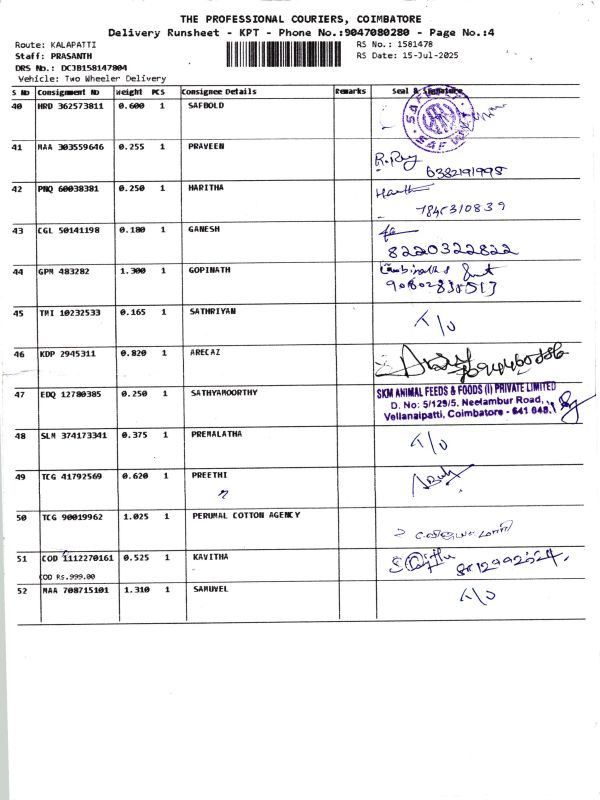 THE PROFESSIONAL COURIERS, COIMBATORE
Delivery Runsheet - KPT - Phone No.:9047080280 - Page No.:4
Route: KALAPATTI RS No.: 1581478
Staff: PRASANTH RS Date: 15-Jul-2025
DRS No.: DC3B158147804
Vehicle: Two Wheeler Delivery
S No Consignment No Weight PCS Consignee Details Remarks Seal & Signature
40 HRD 362573811 0.600 1 SAFBOLD
41 MAA 303559646 0.255 1 PRAVEEN
6382191995
42 PNQ 60038381 0.250 1 HARITHA
7845310839
43 CGL 50141198 0.180 1 GANESH
8220322822
44 GPM 483282 1.300 1 GOPINATH
45 TMI 10232533 0.165 1 SATHRIYAN T/O
46 KDP 2945311 0.820 1 ARECAZ
47 EDQ 12780385 0.250 1 SATHYAMOORTHY SKM ANIMAL FEEDS & FOODS (I) PRIVATE LIMITED
D. No: 5/129/5. Neelambur Road,
Vellanaipatti, Coimbatore - 641 048.
48 SLM 374173341 0.375 1 PREMALATHA T/O
49 TCG 41792569 0.620 1 PREETHI
50 TCG 90019962 1.025 1 PERUMAL COTTON AGENCY
51 COD 1112270161 0.525 1 KAVITHA
COD RS.999.00
52 MAA 708715101 1.310 1 SAMUVEL T/O